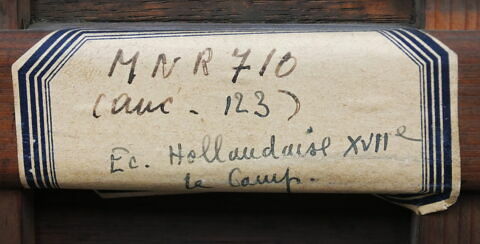 MNR 710
(anc. 123)
Ec. Hollandaise XVIIe
le Camp.